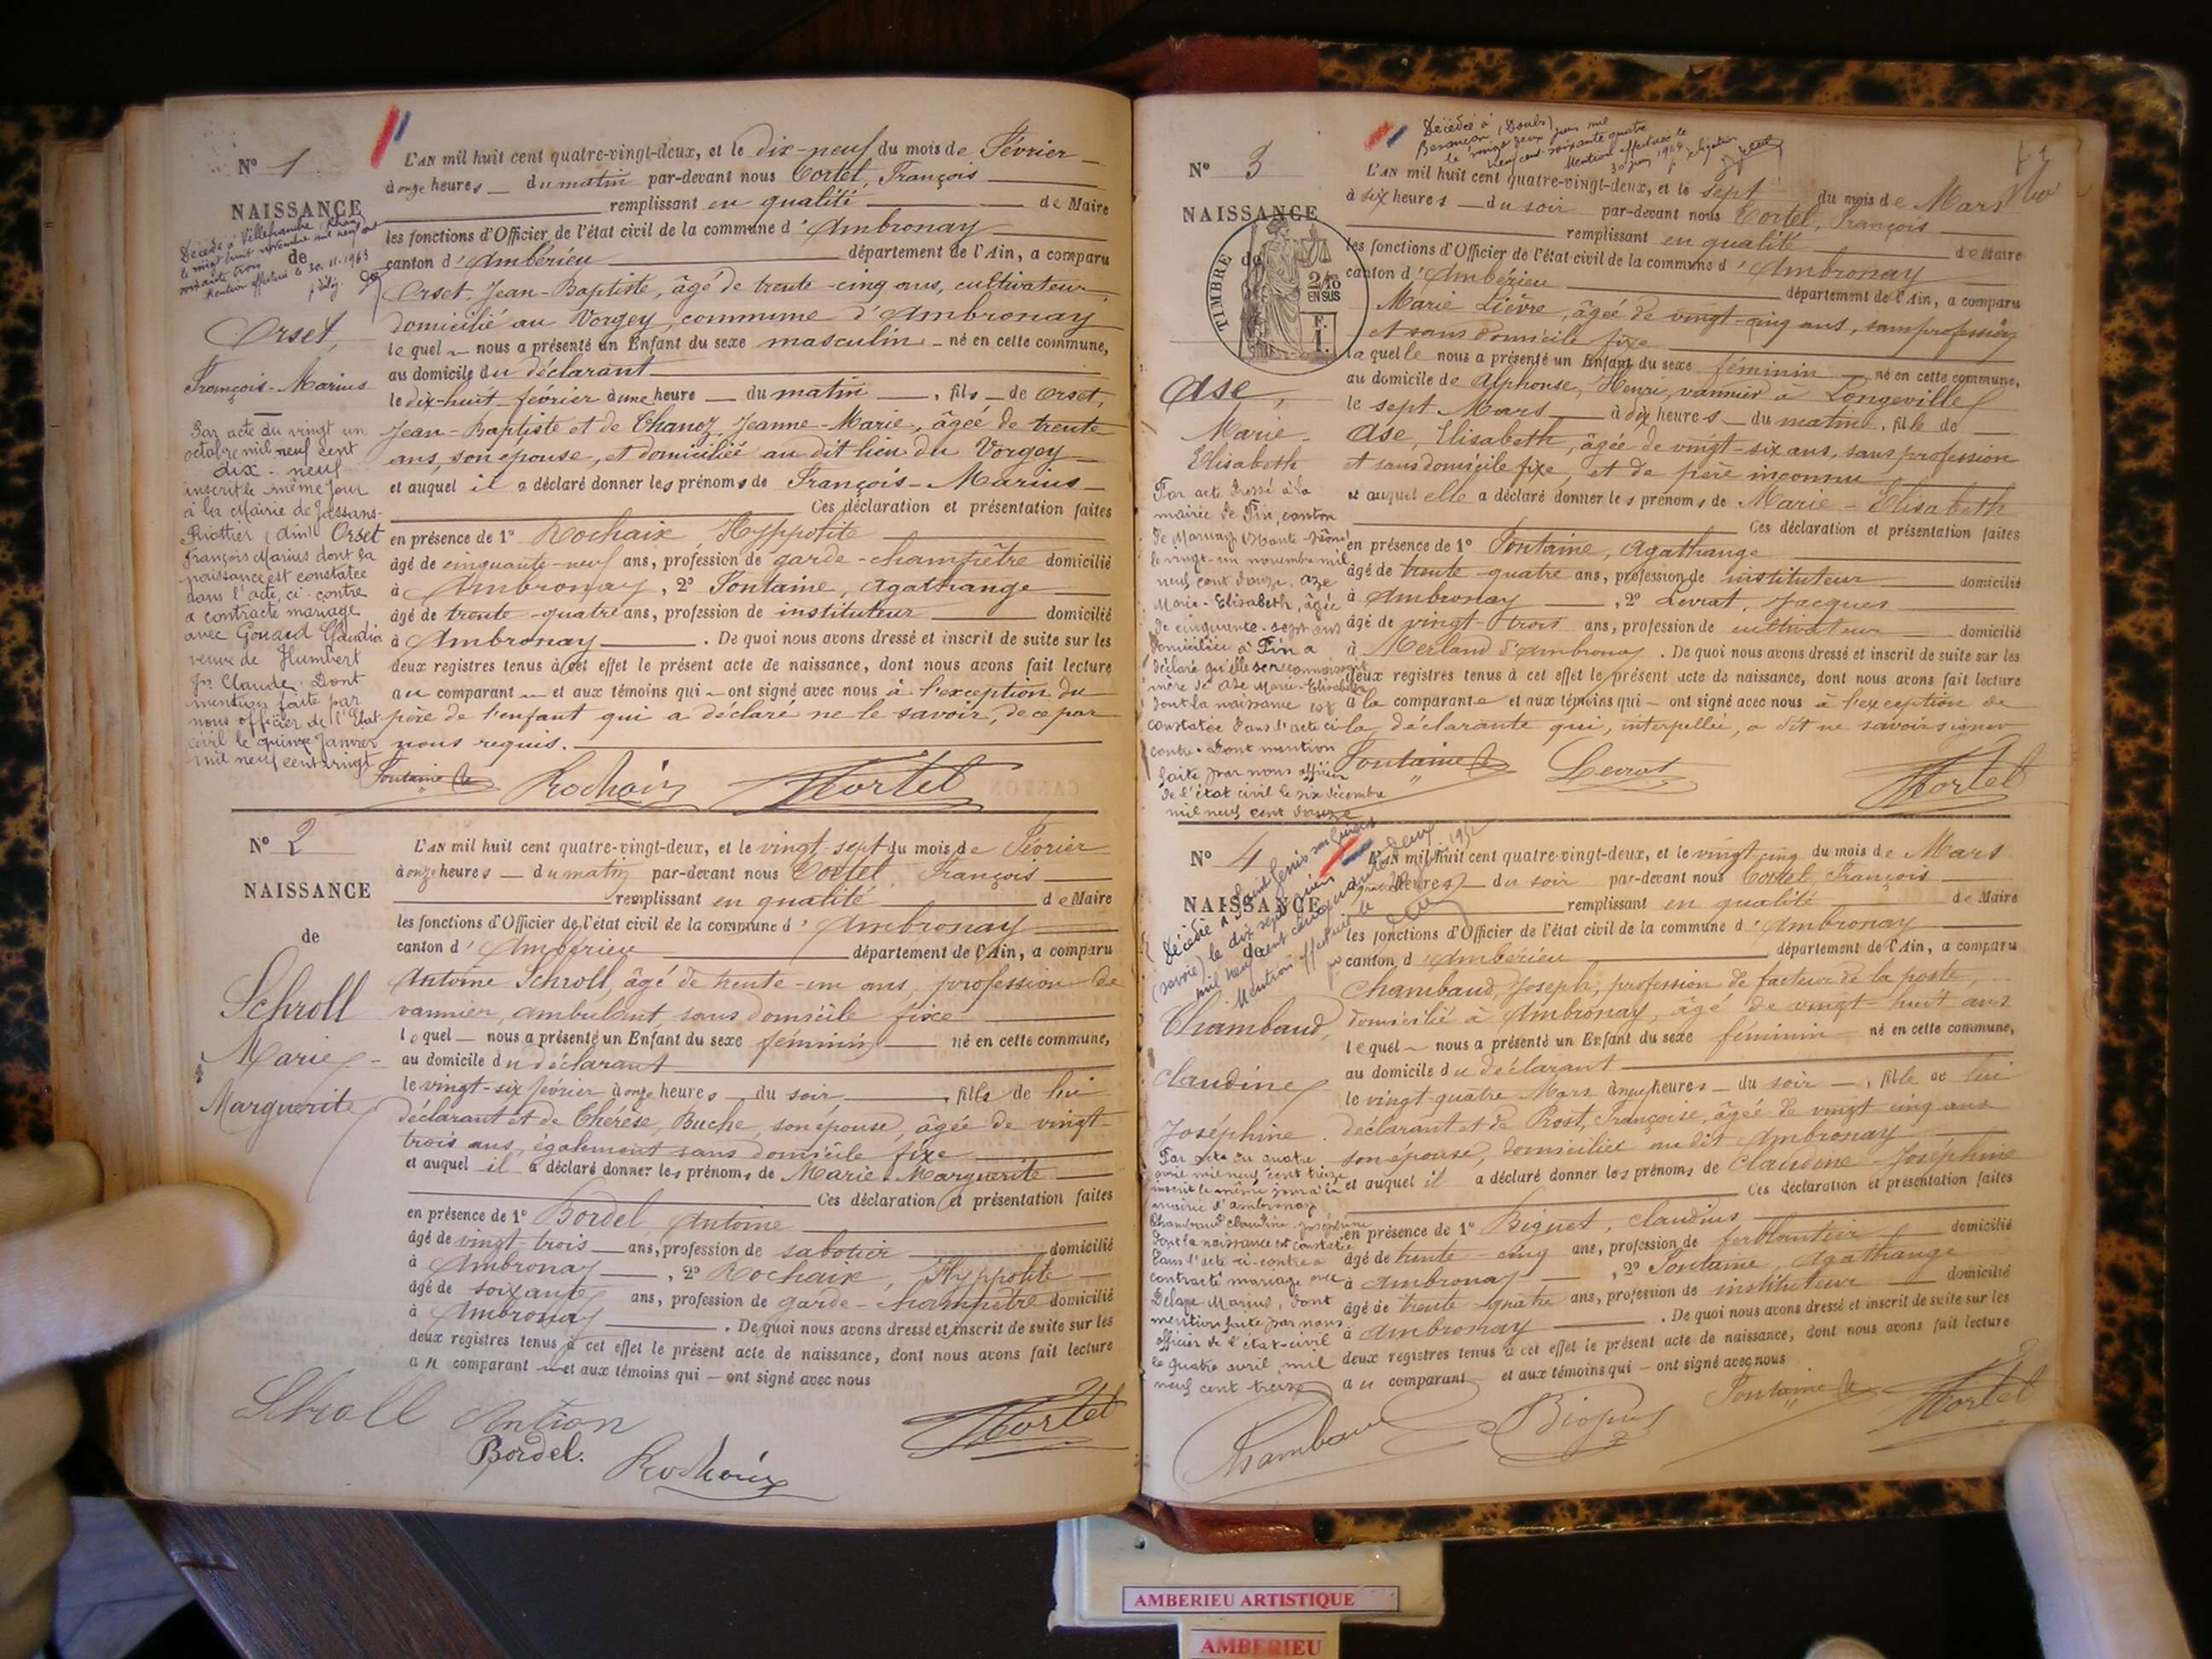 N° 1
NAISSANCE
de
Décédé à Villefranche (Rhône)
le vingt huit novembre mil neuf cent
soixante trois
Mention effectuée le 30.11.1963
Orset,
François-Marius
Par acte du vingt un
octobre mil neuf cent
dix-neuf
inscrit le même jour
à la Mairie de Jassans-
Riottier (Ain) Orset
François Marius dont la
naissance est constatée
dans l'acte ci-contre
a contracté mariage
avec Gonard Claudia
veuve de Humbert
Jn Claude. Dont
mention faite par
nous officier de l'Etat-
civil le quinze Janvier
mil neuf cent vingt
L'AN mil huit cent quatre-vingt-deux, et le dix-neuf du mois de Février
à onze heures du matin par-devant nous Cortel, François
remplissant en qualité de Maire
les fonctions d'Officier de l'état civil de la commune d'Ambronay
canton d'Ambérieu département de l'Ain, a comparu
Orset, Jean-Baptiste, âgé de trente-cinq ans, cultivateur,
domicilié au Vorgey, commune d'Ambronay
lequel nous a présenté un Enfant du sexe masculin né en cette commune,
au domicile du déclarant
le dix-huit février à une heure du matin, fils de Orset,
Jean-Baptiste et de Chanoz, Jeanne-Marie, âgée de trente
ans, son épouse, et domiciliée au dit lieu du Vorgey
et auquel il a déclaré donner les prénoms de François-Marius
Ces déclaration et présentation faites
en présence de 1° Rochaix, Hyppolite
âgé de cinquante-neuf ans, profession de garde-champêtre domicilié
à Ambronay, 2° Fontaine, Agathange
âgé de trente-quatre ans, profession de instituteur domicilié
à Ambronay. De quoi nous avons dressé et inscrit de suite sur les
deux registres tenus à cet effet le présent acte de naissance, dont nous avons fait lecture
au comparant et aux témoins qui ont signé avec nous à l'exception du
père de l'enfant qui a déclaré ne le savoir, de ce par
nous requis.
Fontaine Rochaix Cortel
N° 2
NAISSANCE
de
Schroll
Marie-
Marguerite
L'AN mil huit cent quatre-vingt-deux, et le vingt-sept du mois de Février
à onze heures du matin par-devant nous Cortel, François
remplissant en qualité de Maire
les fonctions d'Officier de l'état civil de la commune d'Ambronay
canton d'Ambérieu département de l'Ain, a comparu
Antoine Schroll, âgé de trente-un ans, profession de
vannier, ambulant, sans domicile fixe
lequel nous a présenté un Enfant du sexe féminin né en cette commune,
au domicile du déclarant
le vingt-six février à onze heures du soir, fille de lui
déclarant et de Thérèse, Buche, son épouse, âgée de vingt-
trois ans, également sans domicile fixe
et auquel il a déclaré donner les prénoms de Marie Marguerite
Ces déclaration et présentation faites
en présence de 1° Bordel, Antoine
âgé de vingt-trois ans, profession de sabotier domicilié
à Ambronay, 2° Rochaix, Hyppolite
âgé de soixante ans, profession de garde-champêtre domicilié
à Ambronay. De quoi nous avons dressé et inscrit de suite sur les
deux registres tenus à cet effet le présent acte de naissance, dont nous avons fait lecture
au comparant et aux témoins qui ont signé avec nous
Schroll Antion Cortel
Bordel. Rochaix
N° 3
NAISSANCE
de
TIMBRE
2/10
EN SUS
Décédée à (Doubs)
Besançon
le vingt deux juin mil
neuf cent soixante quatre
Mention effectuée le
30 juin 1964
Ase,
Marie-
Elisabeth
Par acte dressé à la
mairie de Pin, canton
de Marnay (Haute-Saône)
le vingt-un novembre mil
neuf cent douze, Aze
Marie-Elisabeth, âgée
de cinquante-sept ans
domiciliée à Pin a
déclaré qu'elle se reconnaissait
mère de Aze Marie-Elisabeth
dont la naissance est
constatée dans l'acte ci-
contre. Dont mention
faite par nous officier
de l'état civil le six décembre
mil neuf cent douze
L'AN mil huit cent quatre-vingt-deux, et le sept du mois de Mars
à six heures du soir par-devant nous Cortel, François
remplissant en qualité de Maire
les fonctions d'Officier de l'état civil de la commune d'Ambronay
canton d'Ambérieu département de l'Ain, a comparu
Marie Lièvre, âgée de vingt-cinq ans, sans profession
et sans domicile fixe
laquelle nous a présenté un Enfant du sexe féminin né en cette commune,
au domicile de Alphonse, Henri, vannier à Longeville
le sept Mars à dix heures du matin, fille de
Ase, Elisabeth, âgée de vingt-six ans, sans profession
et sans domicile fixe, et de père inconnu
et auquel elle a déclaré donner les prénoms de Marie-Elisabeth
Ces déclaration et présentation faites
en présence de 1° Fontaine, Agathange
âgé de trente-quatre ans, profession de instituteur domicilié
à Ambronay, 2° Levrat, Jacques
âgé de vingt-trois ans, profession de cultivateur domicilié
à Merland d'Ambronay. De quoi nous avons dressé et inscrit de suite sur les
deux registres tenus à cet effet le présent acte de naissance, dont nous avons fait lecture
à la comparante et aux témoins qui ont signé avec nous à l'exception de
la déclarante qui, interpellée, a dit ne savoir signer
Fontaine Levrat Cortel
N° 4
NAISSANCE
de
Décédée à Saint Genix sur Guiers
(Savoie) le dix sept juin
mil neuf cent cinquante deux
Mention effectuée le
Chambaud,
Claudine
Joséphine.
Par acte du quatre
avril mil neuf cent treize
inscrit le même jour à la
mairie d'Ambronay
Chambaud Claudine-Joséphine
dont la naissance est constatée
dans l'acte ci-contre a
contracté mariage avec
Marius, dont
mention faite par nous
officier de l'état-civil
le quatre avril mil
neuf cent treize
L'AN mil huit cent quatre-vingt-deux, et le vingt-cinq du mois de Mars
heures du soir par-devant nous Cortel, François
remplissant en qualité de Maire
les fonctions d'Officier de l'état civil de la commune d'Ambronay
canton d'Ambérieu département de l'Ain, a comparu
Chambaud, Joseph, profession de facteur de la poste,
domicilié à Ambronay, âgé de vingt-huit ans
lequel nous a présenté un Enfant du sexe féminin né en cette commune,
au domicile du déclarant
le vingt-quatre Mars à neuf heures du soir, fille de lui
déclarant et de Prost, Françoise, âgée de vingt cinq ans
son épouse, domiciliée au dit Ambronay
et auquel il a déclaré donner les prénoms de Claudine Joséphine
Ces déclaration et présentation faites
en présence de 1° Biguet, Claudius
âgé de trente-cinq ans, profession de ferblantier domicilié
à Ambronay, 2° Fontaine, Agathange
âgé de trente-quatre ans, profession de instituteur domicilié
à Ambronay. De quoi nous avons dressé et inscrit de suite sur les
deux registres tenus à cet effet le présent acte de naissance, dont nous avons fait lecture
au comparant et aux témoins qui ont signé avec nous
Chambaud Biguet Fontaine Cortel
AMBERIEU ARTISTIQUE
AMBERIEU